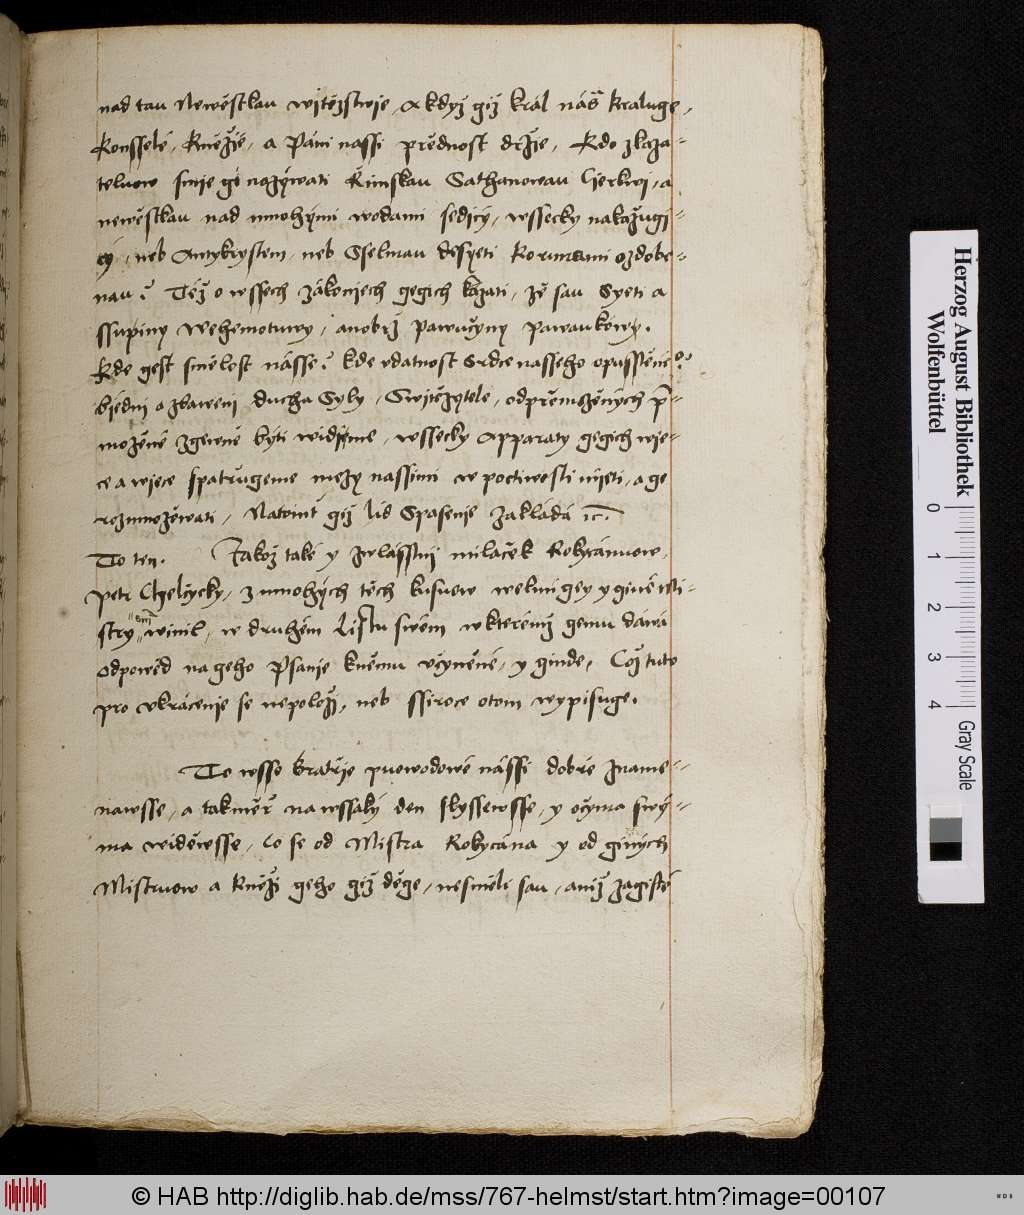 nad tau Newěstkau wjtězstwje, A když giž král náš kraluge,
Konsselé, Kněžie, a Páni nassi přednost držie, Kdo zkaza=
teluow smie gi nazýwati Římskau Sathanowau Cierkwi, a
newěstkau nad mnohými wodami sedicý, wssecky nakažugi=
cý, neb Antykrystem, neb Sselmau desyeti Korunami ozdobe=
nau? Též o wssech zákonjech gegich kázati, že sau Syeti a
ssupiny Wehemotuwy, anobrž pawučyny pawaukowy.
Kde gest smělost násse? kde vdatnost Srdce nasseho opusstěné?
bjedni a zbaweni ducha Syly, Swjtězytele, od přemožených př=
možené zgewně býti widjme, wssecky Apparaty gegich wje=
ce a wjece spatrugeme mezy nassimi w poctiwosti mjeti, a ge
rozmnožowati, Na tomť giž lid Spasenie zakládá ic.
To ten. Jakož také y zwlásstni miláček Rokycánuow,
Petr Chelčycky, z mnohých těch kusuow welmi gey y giné Mi=
stry winil, w druhém Listu swém w kterémž gemu dáwá
odpowěd na geho Psanie k němu včyněné, y ginde, Což tuto
pro vkrácenie se nepoloží, neb ssiroce o tom wypisuge.
To wsse Bratřie puowodowé nássi dobře zname=
nawsse, a takměř na wssaký den slyssewsse, y očyma swý=
ma widěwsse, Co se od Mistra Rokycána y od giných
Mistruow a Kněži geho giž děge, nesměli sau, aniž zagisté
Herzog August Bibliothek
Wolfenbüttel
0 1 2 3 4
Gray Scale
© HAB http://diglib.hab.de/mss/767-helmst/start.htm?image=00107
WDB